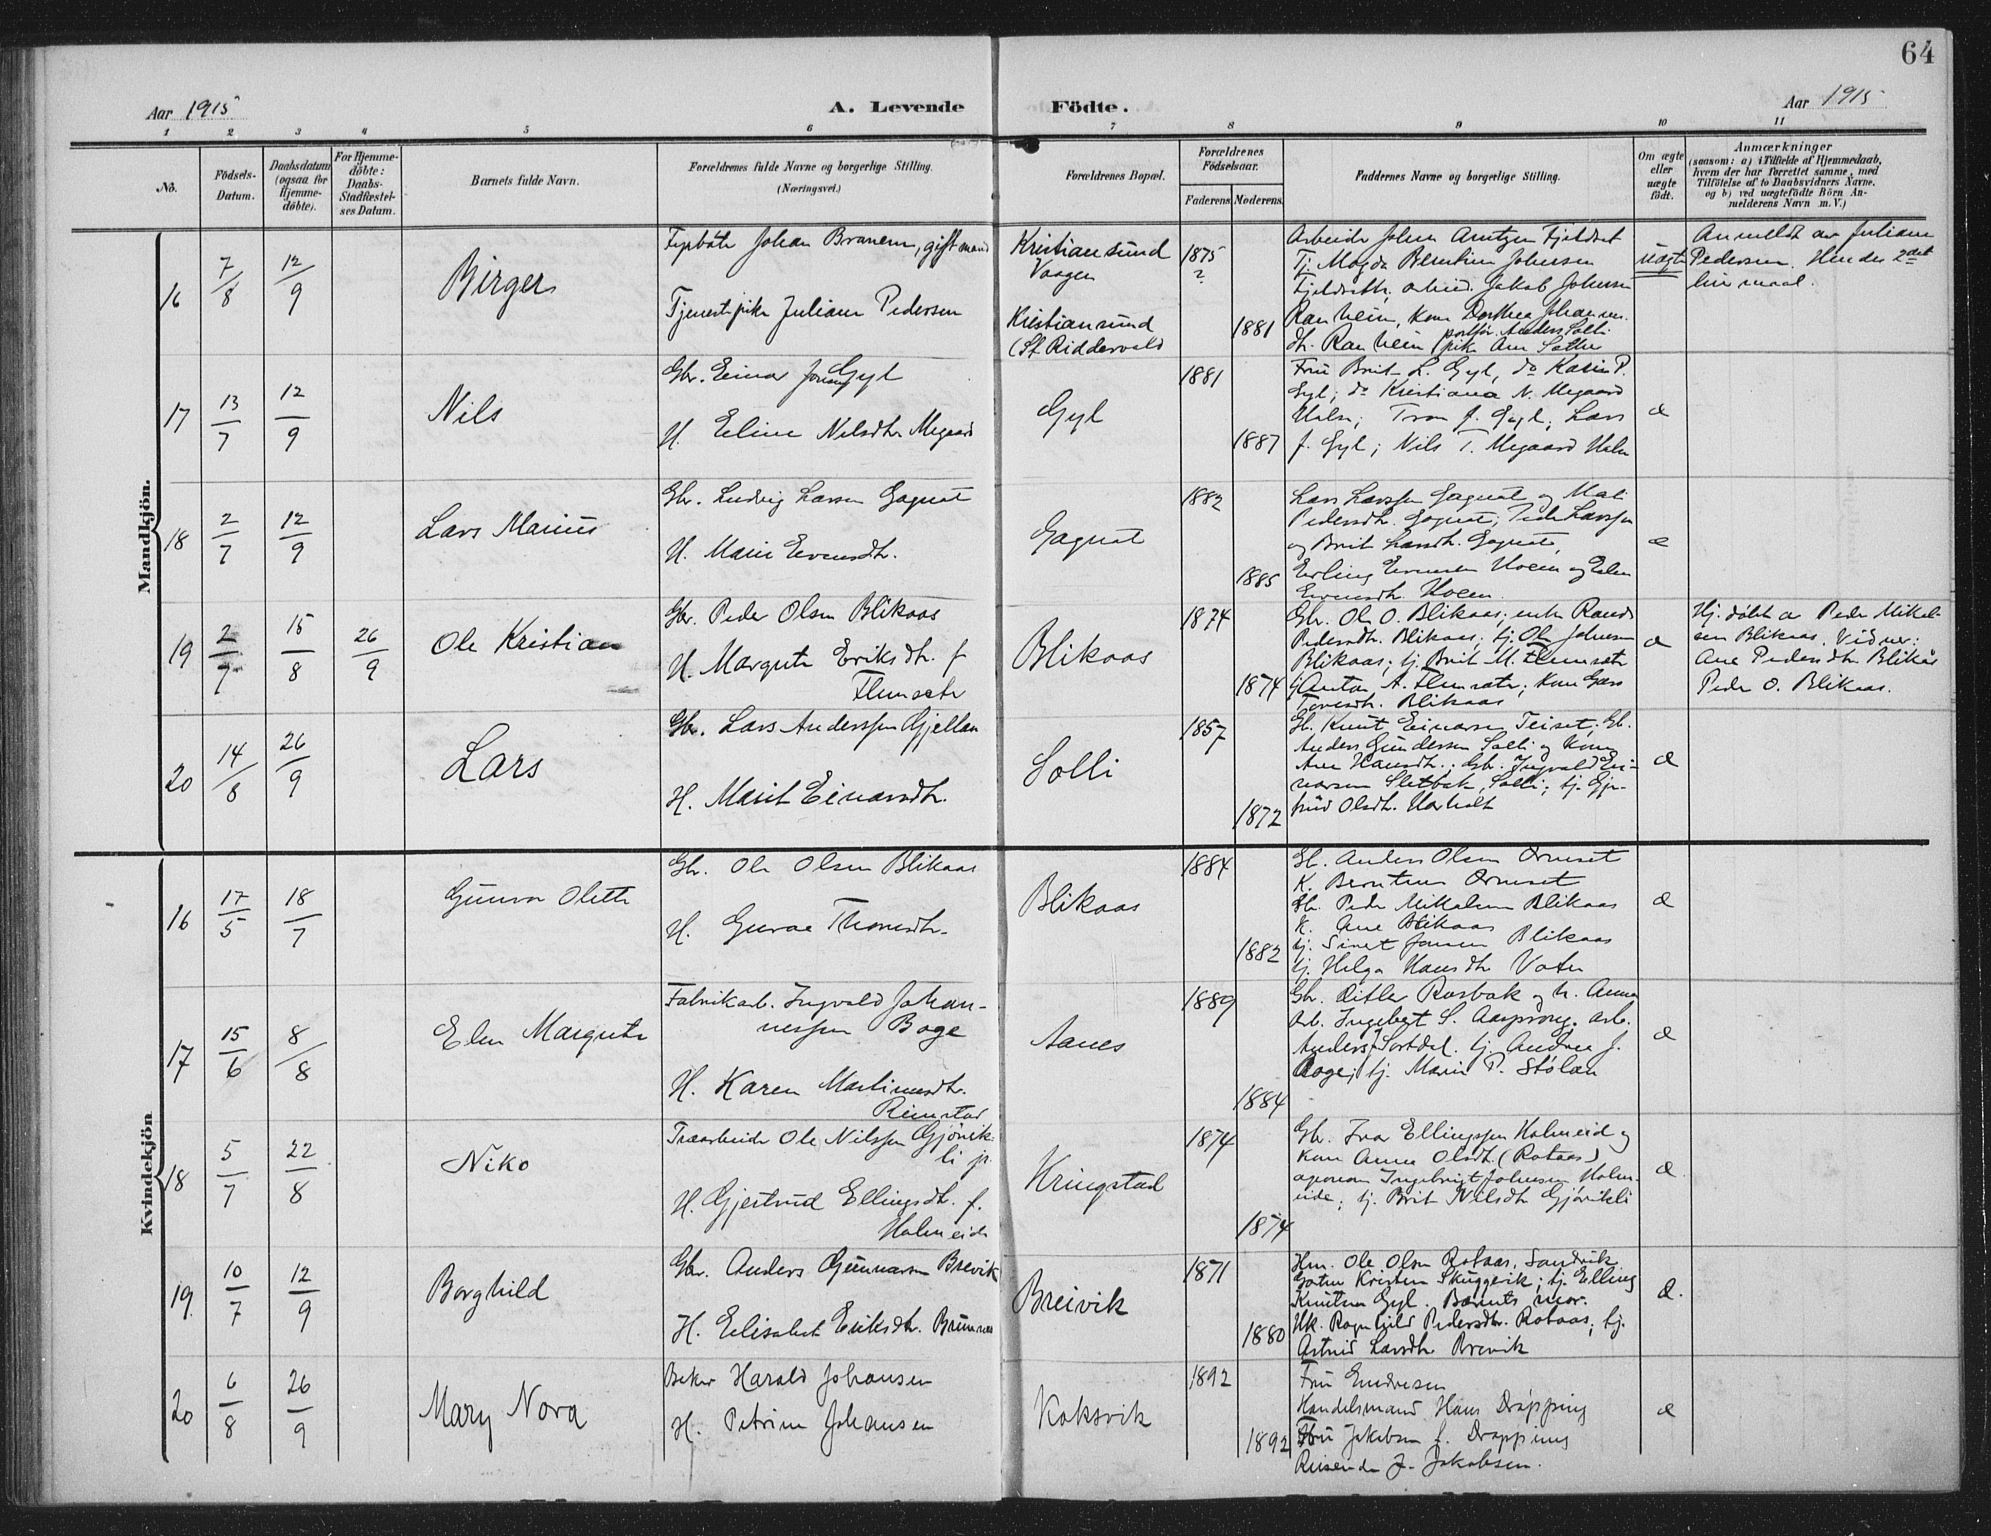 64
Aar 1915
A. Levende Födte.
Aar 1915
1 2 3 4 5 6 7 8 9 10 11
No.
Födsels-
Datum.
Daabsdatum
(ogsaa for
Hjemme-
döbte).
For Hjemme-
döbte:
Daabs-
Stadfæstel-
ses Datum.
Barnets fulde Navn.
Forældrenes fulde Navne og borgerlige Stilling.
(Næringsvei.)
Forældrenes Bopæl.
Forældrenes
Födselsaar.
Faderens Moderens
Faddernes Navne og borgerlige Stilling.
Om ægte
eller
uægte
födt.
Anmærkninger
(saasom: a) i Tilfælde af Hjemmedaab,
hvem der har forrettet samme, med
Tilföielse af to Daabsvidners Navne,
og b) ved uægtefödte Börn An-
melderens Navn m. V.)
Mandkjön.
16 7/8 12/9 Birger
Johan Branem, gift mand
Tjenestepike Juliane Pedersen
Kristiansund
Vaagen
Kristiansund
(St. Riddervold
1875
?
1881
Arbeider Johan Arntzen Fjeldset
Tj. Magda Berntine Johansen
Fjeldseth, arbeid. Jakob Johansen
Ranheim, Kone Dorthea Johansen
Ranheim
uægte
Anmeldt av Juliane
Pedersen. Hendes 2det
leiermaal.
17 13/7 12/9 Nils
Gbr. Einar Jonsen Gyl
H. Eeline Nilsdtr. Megaard
Gyl
1881
1887
Fru Brit L. Gyl, do Karen P.
Gyl; do Kristiana N. Megaard
Tron J. Gyl; Lars
J. Gyl; Nils T. Megaard
æ
18 2/7 12/9 Lars Marius
Gbr. Ludvig Larsen Gagnat
H. Marie Evensdtr.
Gagnat
1882
1885
Lars Larssen Gagnat og Mali
Pedersdtr. Gagnat; Peder Larssen
og Brit Larsdtr. Gagnat,
Erling Evensen Hoem og Elen
Evensdtr. Hoem.
æ
19 2/7 15/8 26/9 Ole Kristian
Gbr. Peder Olsen Blikaas
H. Margrete Eriksdtr. f.
Flemsæter
Blikaas
1874
1874
Gbr. Ole O. Blikaas; enke Randi
Pedersdtr. Blikaas; tj. Ole Johnsen
Blikaas; tj. Brit M. Flemsæter
tj. Anton A. Flemsæter; Kone
Blikaas
æ
Hj. døbt av Peder Mikel-
sen Blikaas. Vidner:
Ane Pedersdtr. Blikås
Peder O. Blikaas.
20 14/8 26/9 Lars
Gbr. Lars Anderssen Gjellan
H. Marit Einarsdtr.
Solli
1857
1872
Gb. Knut Einarsen Teiset; Gb.
Anders Gundersen Solli og Kone
Ane Hansdtr.; Gbr. Ingvald Ei-
narsen Sletbak, Solli; tj. Gjer-
trud Olsdtr. Harholt
æ
Kvindekjön
16 17/5 18/7 Gunvor Olette
Gbr. Ole Olsen Blikaas
H. Guroe Thomsdtr.
Blikaas
1884
1882
Gb. Anders Olsen Ormset
K. Berntine Ormset
Gb. Peder Mikalsen Blikaas
K. Ane Blikaas
tj. Sivert Jonsen Blikaas
tj. Helga Hansdtr. Vaten
æ
17 15/6 8/8 Elen Margrete
Fabrikarb. Ingvald Johan-
nessen Boge
H. Karen Martinusdtr.
Rimstad
Aanes
1889
1884
Gbr. Ditler Rosbak og h. Anna
Arb. Ingebrigt S. Aasprong. Arb.
Anders Sortdal. tj. Andrea J.
Boge; tj. Marie P. Stølan
æ
18 5/7 22/8 Niko
Træarbeider Ole Nilssen Gjørvik-
li jr.
H. Gjertrud Ellingsdtr. f.
Holmeide
Kringstad
1874
1874
Gbr. Ivar Ellingssen Holmeide og
Kone Anne Olsdtr. (Rotaas)
Ingebrigt Johnsen Holm-
eide; tj. Brit Nilsdtr. Gjørvikli
æ
19. 10/7 12/9 Borghild
Gbr. Anders Gunnarsen Breivik
H. Elisabet Eriksdtr.
Breivik
1871
1880
Hm. Ole Olsen Rotaas, Sandvik.
Kristen Skuggevik; tj. Elling
Knutsen Gyl. Barnets mor.
Hk. Ragnhild Pedersdtr. Rotaas; tj.
Astrid Larsdtr. Breivik
æ.
20 6/8 26/9 Mary Nora
Baker Harald Johansen
H. Petrine Johansen
Koksvik
1892
1892
Fru Endresen
Handelsmand Hans Drøpping
Fru Jakobsen f. Drøpping
Reisende J. Jakobsen.
æ